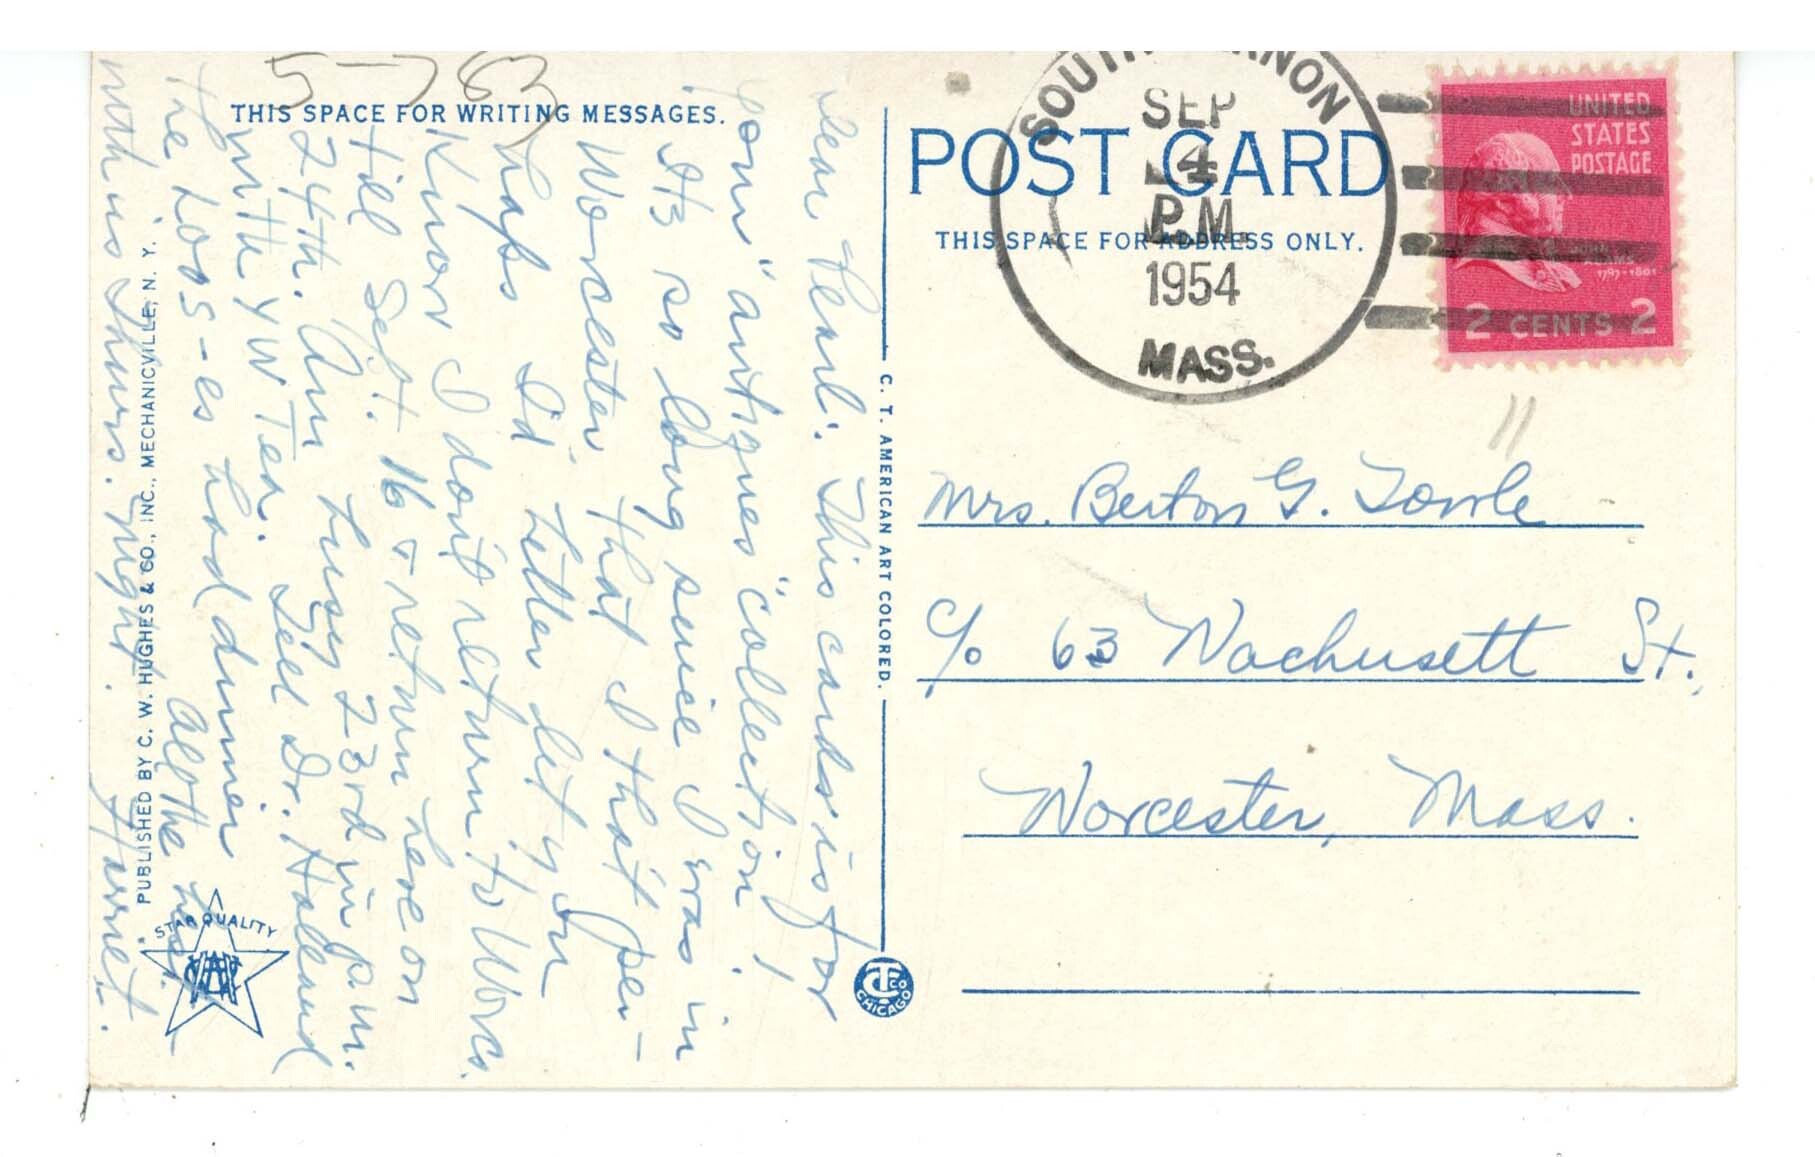 5-783
THIS SPACE FOR WRITING MESSAGES.
Dear Pearl: This card is for
your "antiques" collection!
Its so long since I was in
Worcester that I that per-
haps I'd better let you
Know I don't return to Worc.
till Sept. 16 & return here on
24th. Am busy 23rd in p.m.
with Tea. Tell Dr. Holland
the Loos-es had dinner
with us Thurs. night.
Harriet.
PUBLISHED BY C. W. HUGHES & CO., INC., MECHANICVILLE, N. Y.
STAR QUALITY
C. T. AMERICAN ART COLORED.
CT CO
CHICAGO
POST CARD
THIS SPACE FOR ADDRESS ONLY.
SOUTH VERNON
SEP
4
P.M.
1954
MASS.
UNITED
STATES
POSTAGE
JOHN
ADAMS
1797-1801
2 CENTS 2
Mrs. Berton G. Towle
c/o 63 Wachusett St.,
Worcester, Mass.